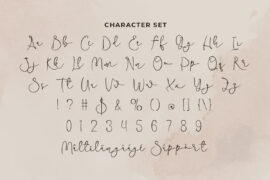 CHARACTER SET
Aa Bb Cc Dd Ee Ff Gg Hh Ii Jj
Kk Ll Mm Nn Oo Pp Qq Rr
Ss Tt Uu Vv Ww Xx Yy Zz
! ? # $ & % () * @ . [] {}
0 1 2 3 4 5 6 7 8 9
Multilanguage Support